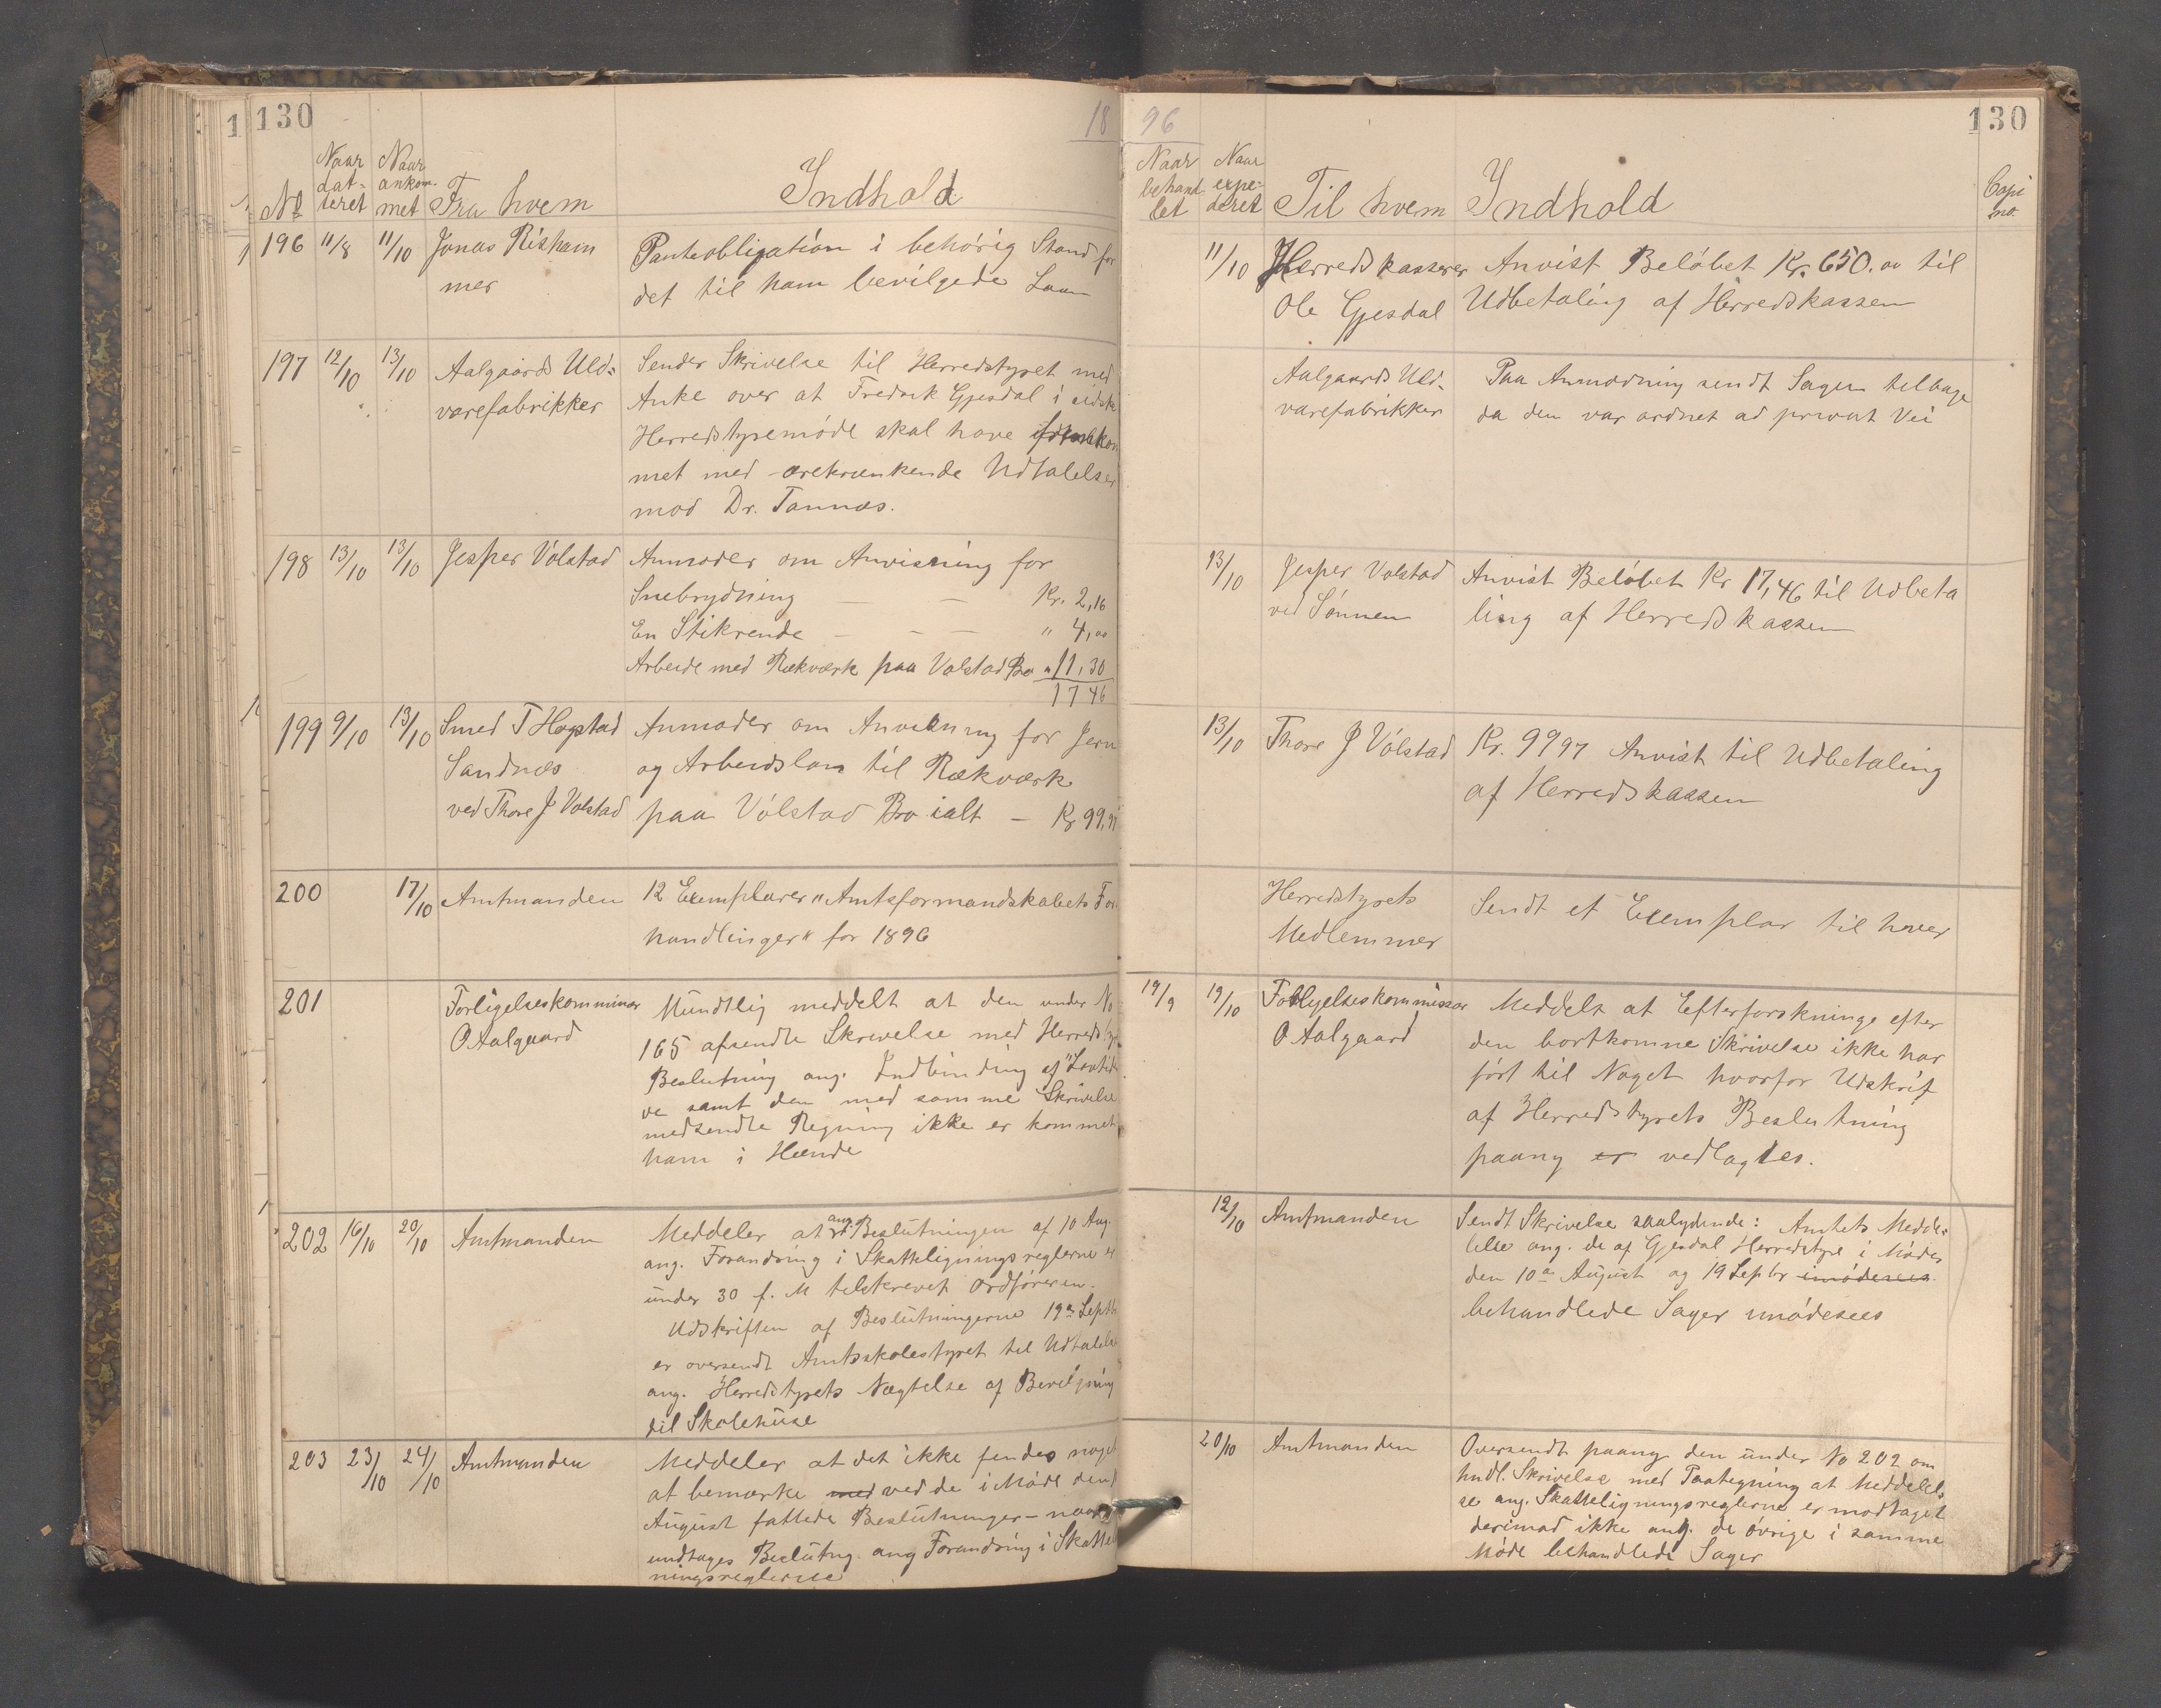 130
18
Nº
Naar dat-teret
Naar ankom-met
Fra hvem
Indhold
196 11/8 11/10 Jonas Risham
mer
Panteobligation i behörig Stand for
det til ham bevilgede Laan
197 12/10 13/10 Aalgaards Uld-
varefabrikker
Sender Skrivelse til Herredstyret med
Anke over at Fredrik Gjesdal i sidste
Herredstyremöde skal have fremkom
met med ærekrænkende Udtalelser
mod Dr. Tannæs.
198 13/10 13/10 Jesper Volstad
Anmoder om Anvisning for
Snebrydning — — Kr. 2,16
En Stikrende — — — " 4,00
Arbeide med Rækværk paa Volstad Bro " 11,30
17 46
199 9/10 13/10 Smed T Hogstad
Sandnæs
ved Thore J Volstad
Anmoder om Anvisning for Jern
og Arbeidsløn til Rækværk
paa Volstad Bro ialt — Kr 99,97
200 17/10 Amtmanden
12 Exemplarer "Amtsformandskabets For
handlinger" for 1896
201 Forligelseskommissær
O Aalgaard
Mundtlig meddelt at den under No
165 afsendte Skrivelse med Herredsty
Beslutning ang. Indbinding af "Lovtide
ve samt den med samme Skrivelse
medsendte Regning ikke er kommet
ham i Hænde
202 16/10 20/10 Amtmanden
Meddeler at ang. Beslutningen af 10 Aug.
ang. Forandring i Skatteligningsreglerne er
under 30 f. M tilskrevet Ordføreren.
Udskriften af Beslutningerne 19de Septb
er oversendt Amtsskolestyret til Udtalelse
ang. Herredstyrets Nægtelse af Bevilgning
til Skolehuse
203 23/10 24/10 Amtmanden
Meddeler at det ikke findes noget
at bemærke med ved de i Møde den
August fattede Beslutninger – naar
undtages Beslutng. ang Forandring i Skattelig
ningsreglerne
96
130
Naar behand-let
Naar expe-deret
Til hvem
Indhold
Copi no.
11/10 Herredskasserer
Ole Gjesdal
Anvist Belöbet Kr. 650.00 til
Udbetaling af Herredskassen
Aalgaards Uld-
varefabrikker
Paa Anmodning sendt Sagen tilbage
da den var ordnet ad privat Vei
13/10 Jesper Volstad
ved Sönnen
Anvist Belöbet Kr 17,46 til Udbeta
ling af Herredskassen
13/10 Thore J Volstad
Kr. 9997 Anvist til Udbetaling
af Herredskassen
Herredstyrets
Medlemmer
Sendt et Exemplar til hver
19/9 19/10 Forligelseskommissær
O Aalgaard
Meddelt at Efterforskninge efter
den bortkomne Skrivelse ikke har
ført til Noget hvorfor Udskrift
af Herredstyrets Beslutning
paang er vedlagtes.
12/10 Amtmanden
Sendt Skrivelse saalydende: Amtets Medde-
lelse ang. de af Gjesdal Herredstyre i Møder
den 10de August og 19 Septbr imödesees
behandlede Sager imödesees
20/10 Amtmanden
Oversendt paang den under No 202 om
hndl. Skrivelse med Paategning at Meddelel-
se ang. Skatteligningsreglerne er modtaget
derimod ikke ang. de övrige i samme
Möde behandlede Sager